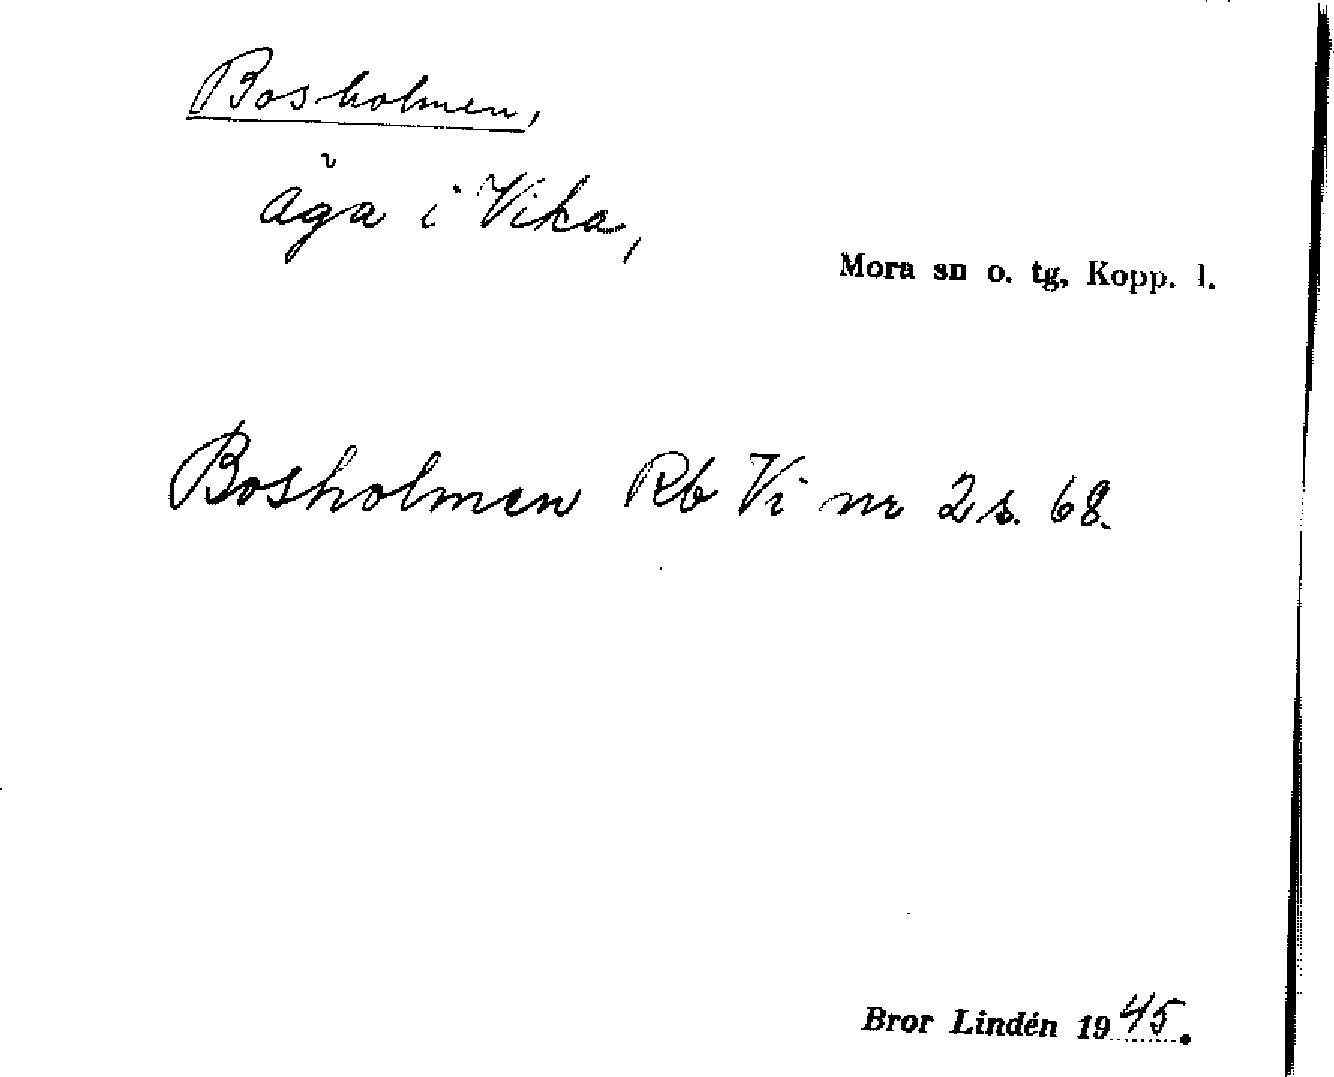 Bosholmen,
åga i Vika,
Mora sn o. tg, Kopp. l.
Bosholmen Rb Vi nr 2 s. 68.
Bror Lindén 1945.